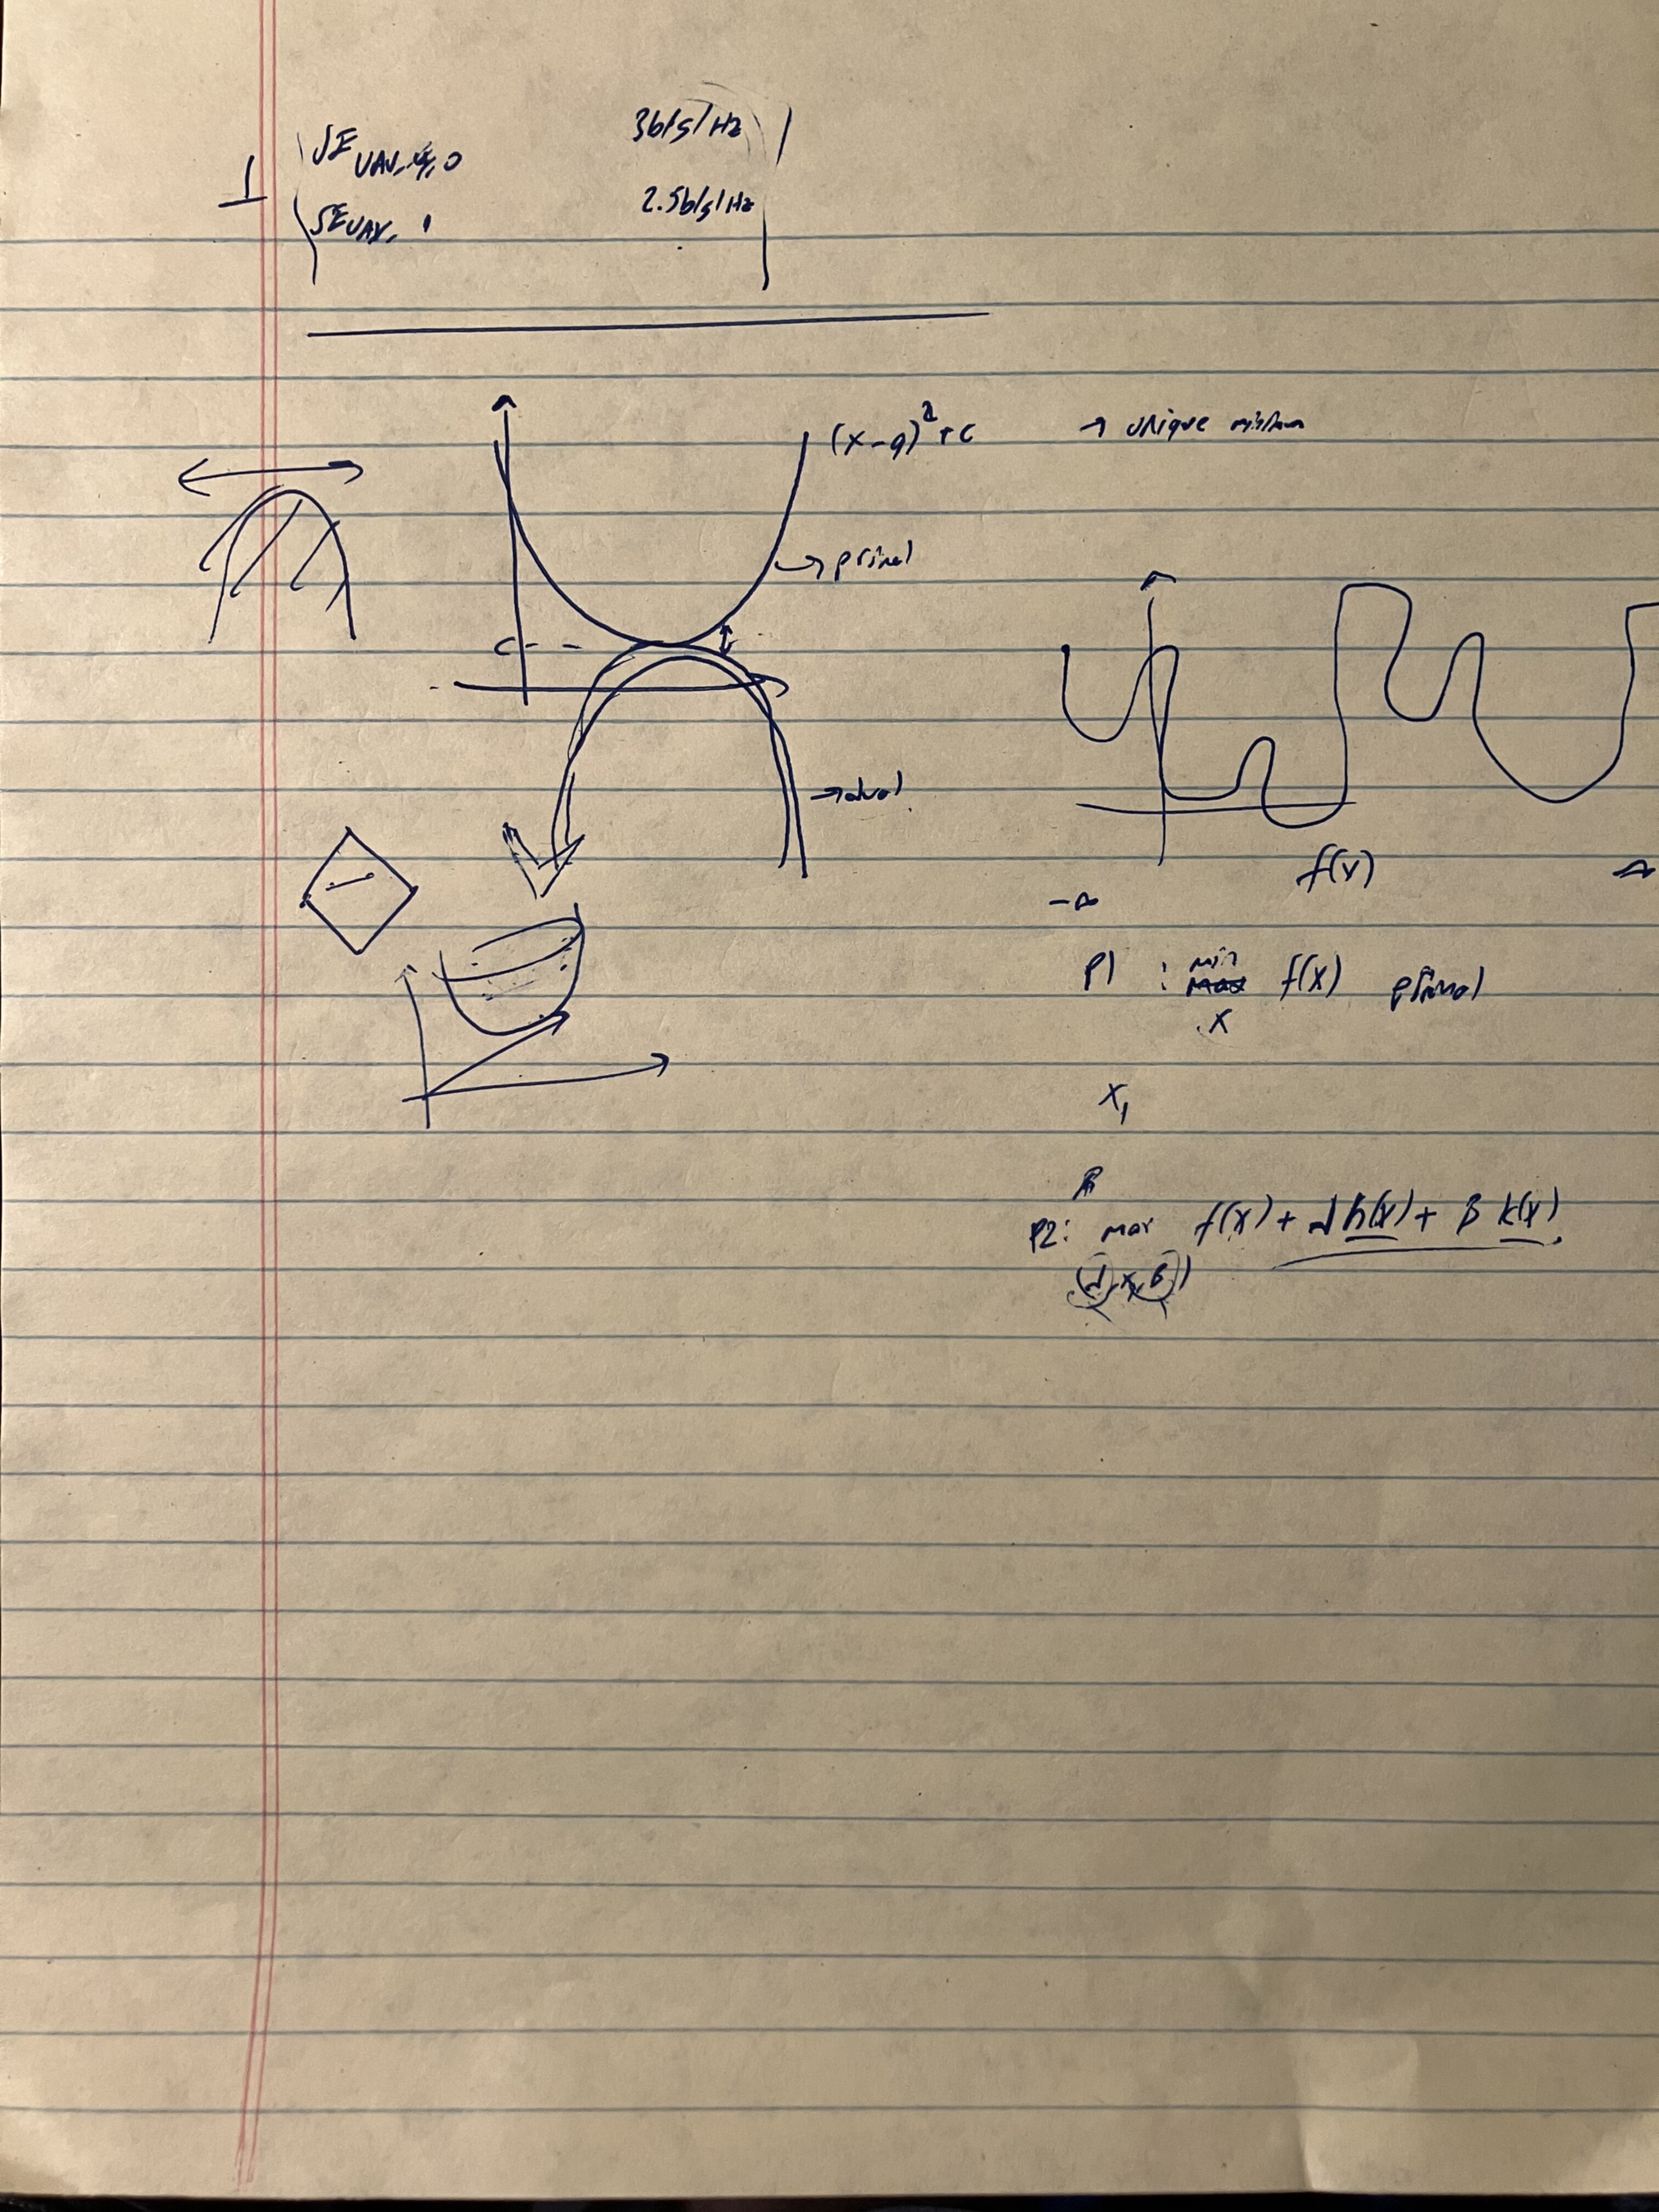 1
SE UAV, 0 3b/s/Hz
SE UAV, 1 2.5b/s/Hz
(x-a)²+c → unique minimum
→ primal
c
→ dual
f(x)
-∞ ∞
P1 : min max f(x) primal
x
x₁
P2: max f(x) + α h(x) + β k(x)
(α, x, β)